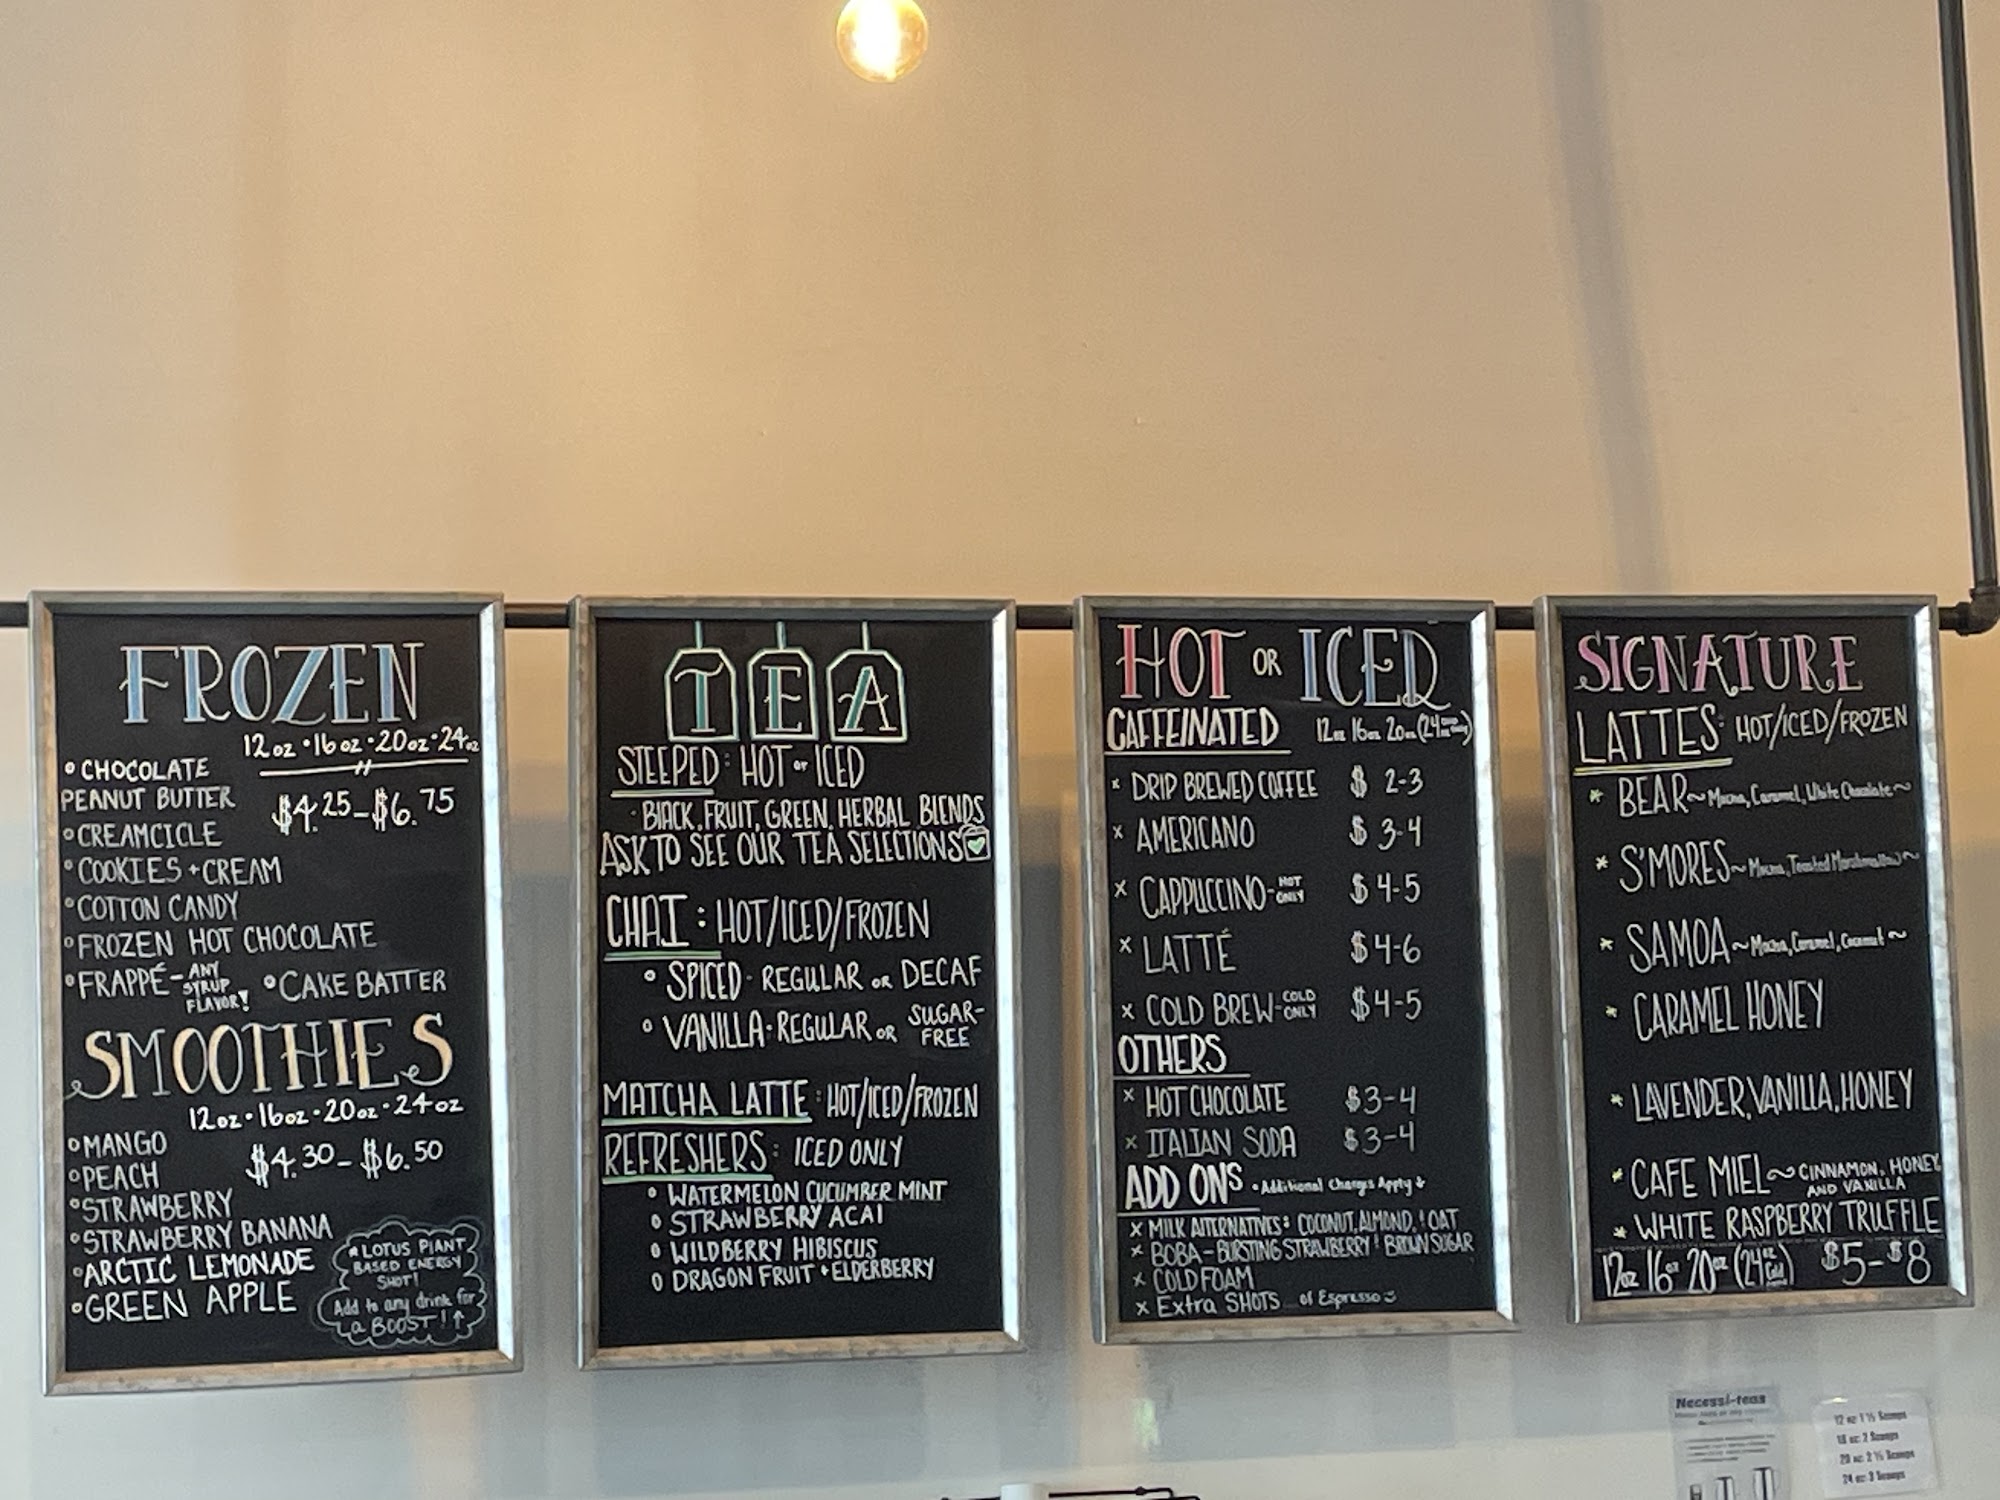 FROZEN
12oz • 16oz • 20oz • 24oz
° CHOCOLATE
PEANUT BUTTER
$4.25 - $6.75
° CREAMCICLE
° COOKIES + CREAM
° COTTON CANDY
° FROZEN HOT CHOCOLATE
° FRAPPÉ - ANY SYRUP FLAVOR! ° CAKE BATTER
SMOOTHIES
12oz • 16oz • 20oz • 24oz
° MANGO
$4.30 - $6.50
° PEACH
° STRAWBERRY
° STRAWBERRY BANANA
° ARCTIC LEMONADE
° GREEN APPLE
* LOTUS PLANT
BASED ENERGY
SHOT!
Add to any drink for
a BOOST!↑
TEA
STEEPED: HOT or ICED
- BLACK, FRUIT, GREEN, HERBAL BLENDS
ASK TO SEE OUR TEA SELECTIONS
CHAI: HOT/ICED/FROZEN
° SPICED - REGULAR OR DECAF
° VANILLA - REGULAR OR SUGAR-FREE
MATCHA LATTE: HOT/ICED/FROZEN
REFRESHERS: ICED ONLY
° WATERMELON CUCUMBER MINT
° STRAWBERRY ACAI
° WILDBERRY HIBISCUS
° DRAGON FRUIT + ELDERBERRY
HOT OR ICED
CAFFEINATED 12oz 16oz 20oz (24oz only)
x DRIP BREWED COFFEE $ 2-3
x AMERICANO $ 3-4
x CAPPUCCINO - HOT ONLY $ 4-5
x LATTÉ $ 4-6
x COLD BREW - COLD ONLY $ 4-5
OTHERS
x HOT CHOCOLATE $3-4
x ITALIAN SODA $3-4
ADD ONS • Additional Charges Apply ↓
x MILK ALTERNATIVES: COCONUT, ALMOND, ! OAT
x BOBA - BURSTING STRAWBERRY ! BROWN SUGAR
x COLD FOAM
x Extra SHOTS of Espresso
SIGNATURE
LATTES: HOT/ICED/FROZEN
* BEAR ~ Mocha, Caramel, White Chocolate ~
* S'MORES ~ Mocha, Toasted Marshmallow ~
* SAMOA ~ Mocha, Caramel, Coconut ~
* CARAMEL HONEY
* LAVENDER, VANILLA, HONEY
* CAFE MIEL ~ CINNAMON, HONEY,
AND VANILLA
* WHITE RASPBERRY TRUFFLE
12oz 16oz 20oz (24oz Cold) $5 - $8
Necessi-teas
12 oz: 1 ½ Scoops
16 oz: 2 Scoops
20 oz: 2 ½ Scoops
24 oz: 3 Scoops